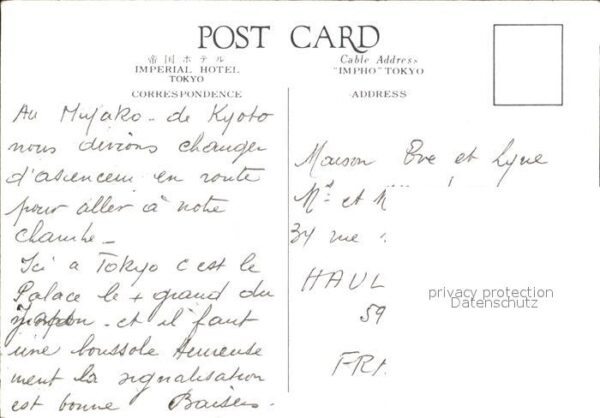 POST CARD
帝国ホテル
IMPERIAL HOTEL
TOKYO
Cable Address
"IMPHO" TOKYO
CORRESPONDENCE
ADDRESS
Au Miyako - de Kyoto
nous devions changer
d'ascenceur en route
pour aller à notre
chambre -
Ici a Tokyo c'est le
Palace le + grand du
Japon - et il faut
une boussole heureuse
ment la signalisation
est bonne Baisers -
Maison Eve et Lyne
Md et M
34 rue
HAUL
59
FRA
privacy protection
Datenschutz